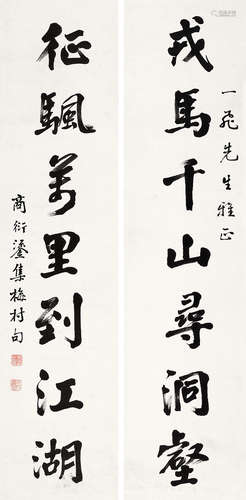 一飛先生雅正
戎馬千山尋洞壑
征颿萬里到江湖
商衍鎏集梅村句